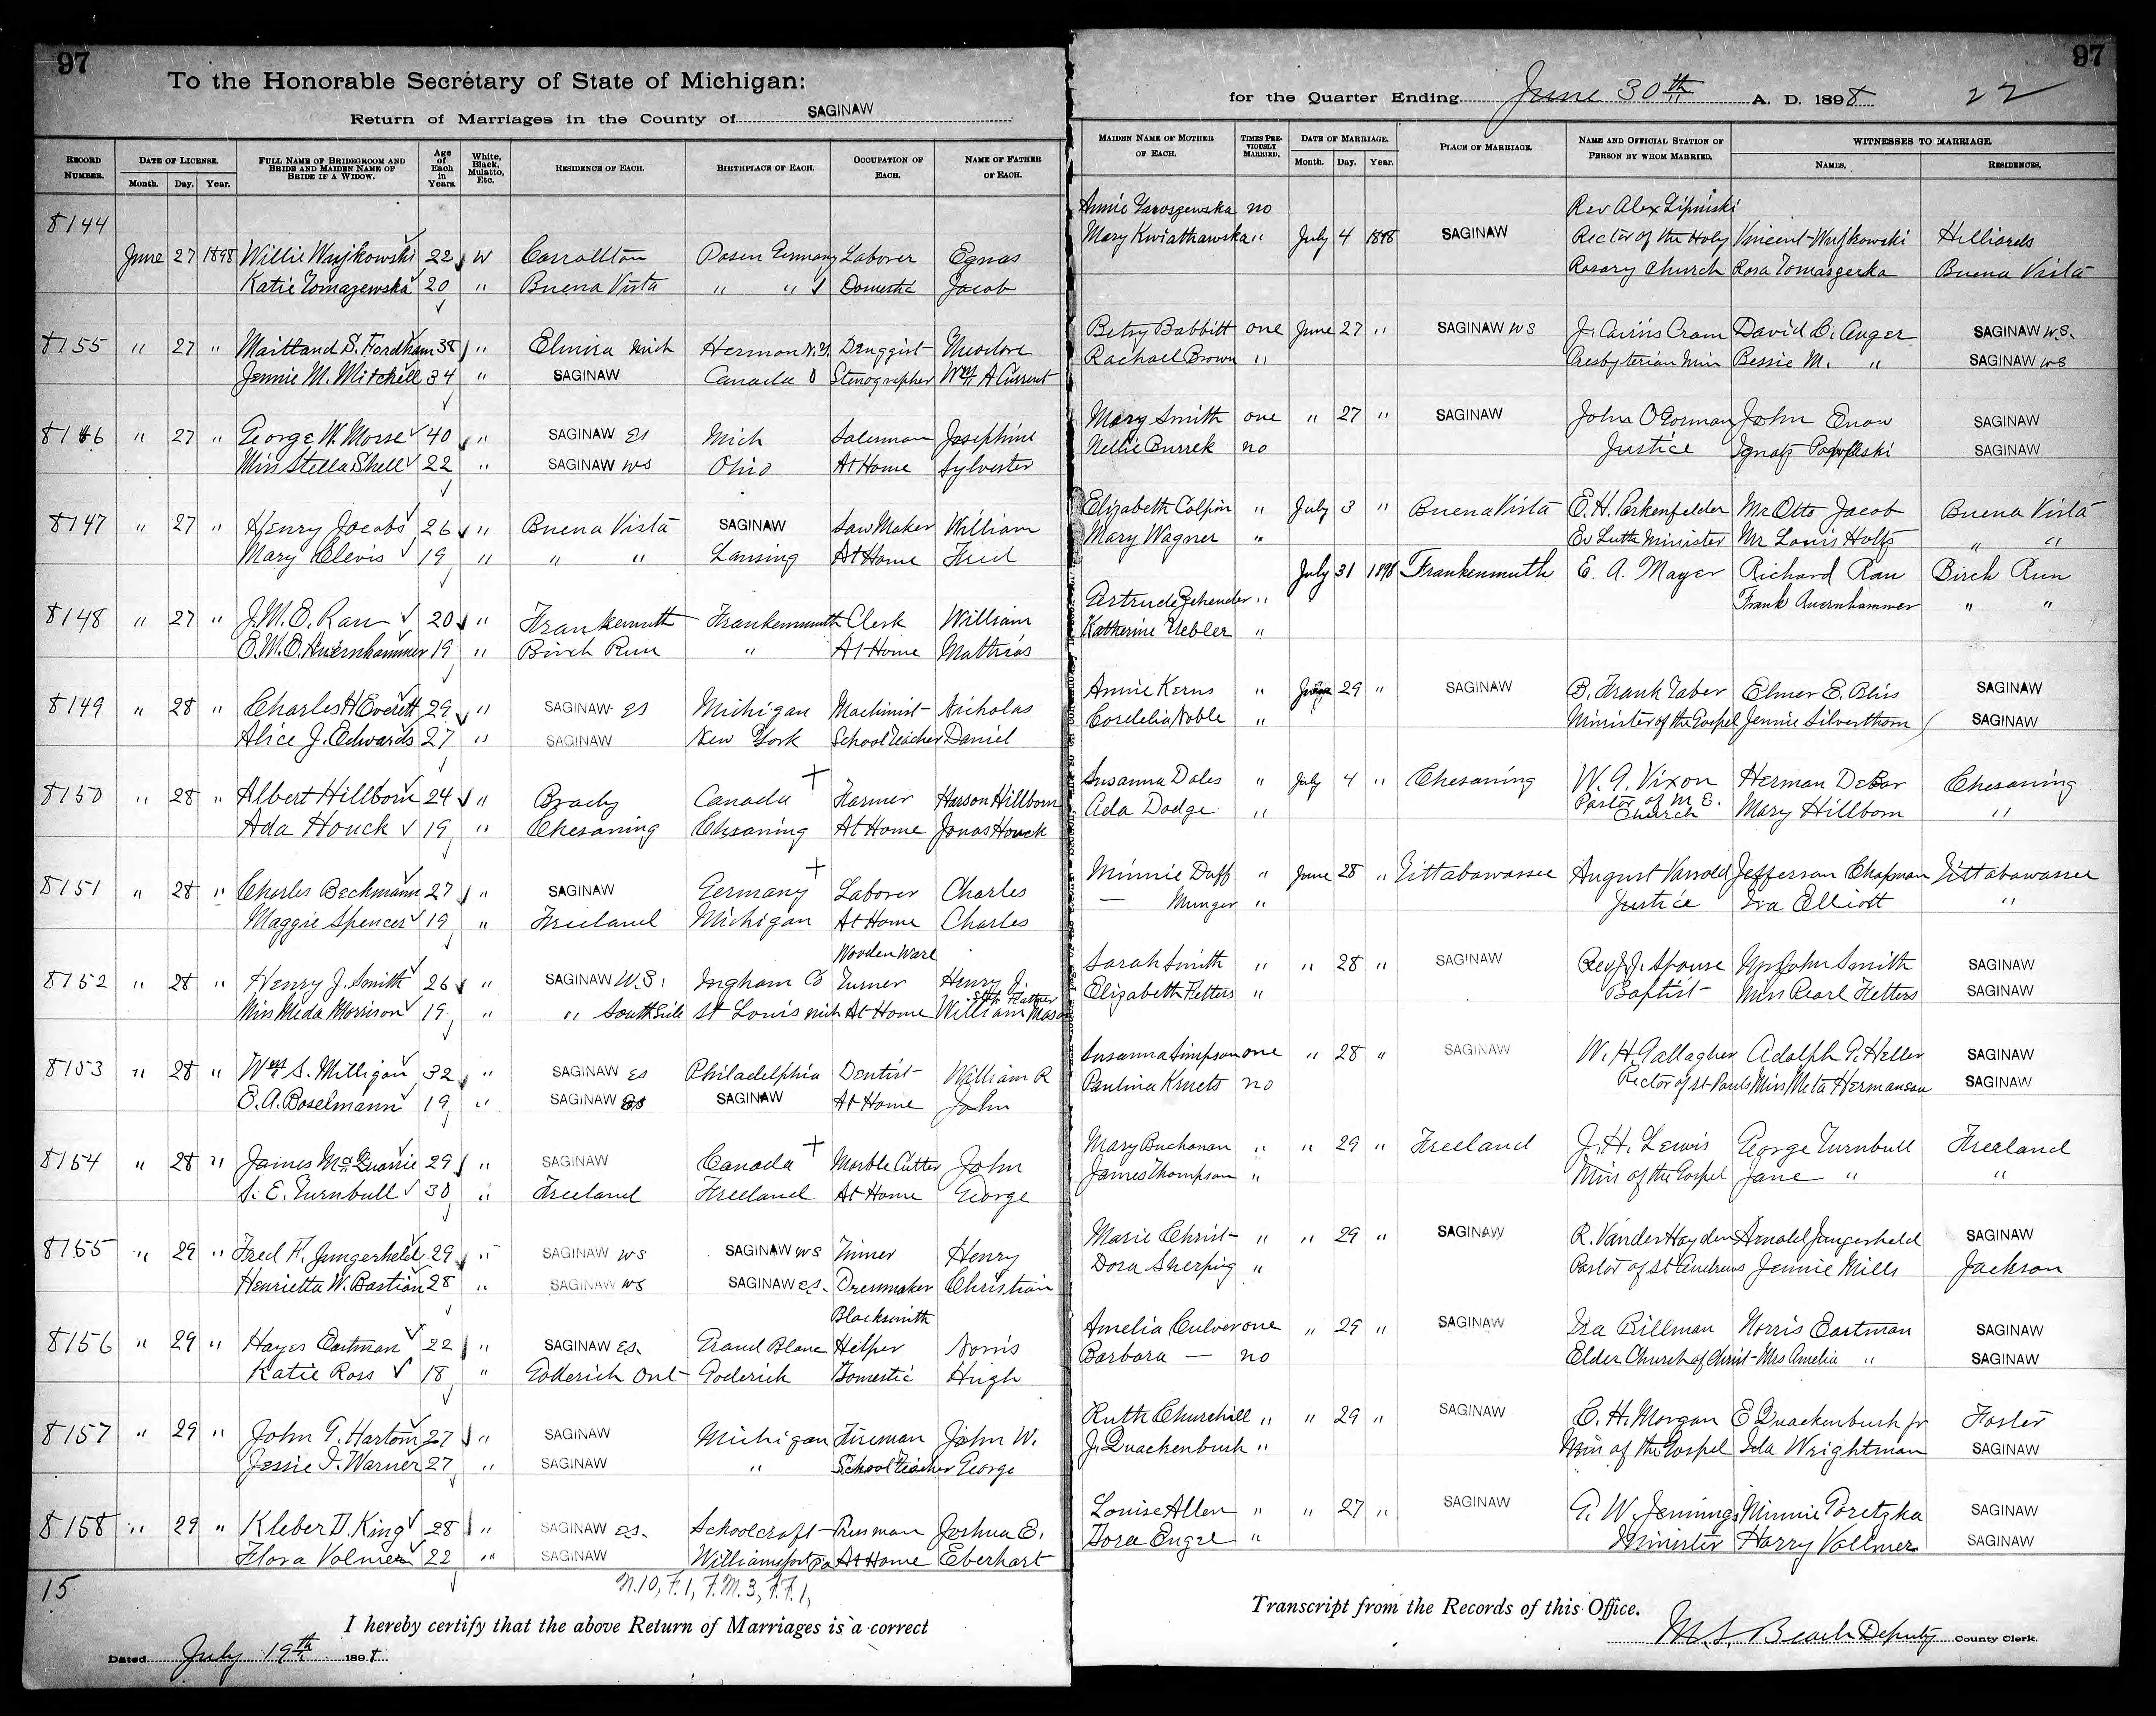 97
To the Honorable Secretary of State of Michigan:
Return of Marriages in the County of SAGINAW
RECORD NUMBER. DATE OF LICENSE. Month. Day. Year. FULL NAME OF BRIDEGROOM AND BRIDE AND MAIDEN NAME OF BRIDE IF A WIDOW. Age of Each in Years. White, Black, Mulatto, Etc. RESIDENCE OF EACH. BIRTHPLACE OF EACH. OCCUPATION OF EACH. NAME OF FATHER OF EACH.
8144
June 27 1898 Willie Wujkowski 22 W Carrollton Posen Germany Laborer Egnas
Katie Tomazewska 20 " Buena Vista " " Domestic Jacob
8155 " 27 " Maitland S. Fordham 38 " Elmira Mich Hermon N.Y. Druggist Theodore
Jennie M. Mitchell 34 " SAGINAW Canada Stenographer Wm A Current
8146 " 27 " George W. Morse 40 " SAGINAW ES Mich Salesman Josephine
Miss Stella Shell 22 " SAGINAW WS Ohio At Home Sylvester
8147 " 27 " Henry Jacobs 26 " Buena Vista SAGINAW Saw Maker William
Mary Clevis 19 " " " Lansing At Home Fred
8148 " 27 " J. M. O. Rau 20 " Frankenmuth Frankenmuth Clerk William
E. M. O. Auernhammer 19 " Birch Run " At Home Mathias
8149 " 28 " Charles H Everett 29 " SAGINAW ES Michigan Machinist Nicholas
Alice J. Edwards 27 " SAGINAW New York School Teacher Daniel
8150 " 28 " Albert Hillborn 24 " Brady Canada + Farmer Harson Hillborn
Ada Houck 19 " Chesaning Chesaning At Home Jonas Houck
8151 " 28 " Charles Beckmann 27 " SAGINAW Germany + Laborer Charles
Maggie Spencer 19 " Freeland Michigan At Home Charles
Wooden Ware
8152 " 28 " Henry J. Smith 26 " SAGINAW W.S. Ingham Co Turner Henry J.
Step Father
Miss Meda Morrison 19 " " South Side St Louis Mich At Home William Mason
8153 " 28 " Wm S. Milligan 32 " SAGINAW ES Philadelphia Dentist William R
E. A. Boselmann 19 " SAGINAW ES SAGINAW At Home John
8154 " 28 " James McQuarrie 29 " SAGINAW Canada + Marble Cutter John
S. E. Turnbull 30 " Freeland Freeland At Home George
8155 " 29 " Fred F. Jungerheld 29 " SAGINAW WS SAGINAW WS Tinner Henry
Henrietta W. Bastian 28 " SAGINAW WS SAGINAW ES. Dressmaker Christian
Blacksmith
8156 " 29 " Hayes Eastman 22 " SAGINAW ES. Grand Blanc Helper Norris
Katie Ross 18 " Goderich Ont Goderich Domestic Hugh
8157 " 29 " John T. Hartom 27 " SAGINAW Michigan Fireman John W.
Jessie I. Warner 27 " SAGINAW " School Teacher George
8158 " 29 " Kleber D. King 28 " SAGINAW ES. Schoolcraft Pressman Joshua E.
Flora Volmer 22 " SAGINAW Williamsport Pa At Home Eberhart
15
N.10, F.1, F.M.3, F.F.1,
I hereby certify that the above Return of Marriages is a correct
Dated July 19th 1898
97
for the Quarter Ending June 30th A. D. 1898 22
MAIDEN NAME OF MOTHER OF EACH. TIMES PREVIOUSLY MARRIED. DATE OF MARRIAGE. Month. Day. Year. PLACE OF MARRIAGE. NAME AND OFFICIAL STATION OF PERSON BY WHOM MARRIED. WITNESSES TO MARRIAGE. NAMES. RESIDENCES.
Annie Yaroszewska no Rev Alex Lipinski
Mary Kwiathawska " July 4 1898 SAGINAW Rector of the Holy Vincent Wujkowski Hilliards
Rosary Church Rosa Tomaszecka Buena Vista
Betsy Babbitt one June 27 " SAGINAW WS J. Cairns Cram David C. Anger SAGINAW W.S.
Rachael Brown " Presbyterian Min Bessie M. " SAGINAW WS
Mary Smith one " 27 " SAGINAW John O'Gorman John Enow SAGINAW
Nellie Burrek no Justice Ignatz SAGINAW
Elizabeth Colpin " July 3 " Buena Vista E. H. Parkenfelder Mr Otto Jacob Buena Vista
Mary Wagner " Ev Luth Minister Mr Louis Holtz " "
July 31 1898 Frankenmuth E. A. Mayer Richard Rau Birch Run
Gertrude Zehender " Frank Auernhammer " "
Katherine Uebler "
Annie Kerns " June 29 " SAGINAW B. Frank Taber Elmer E. Bliss SAGINAW
Cordelia Noble " Minister of the Gospel Jennie Silverthorn SAGINAW
Susanna Dales " July 4 " Chesaning W. G. Nixon Herman DeBar Chesaning
Ada Dodge " Pastor of M. E. Church Mary Hillborn "
Minnie Duff " June 28 " Tittabawassee August Varrold Jefferson Chapman Tittabawassee
— Munger " Justice Ira Elliott "
Sarah Smith " " 28 " SAGINAW Rev J. J. Spouse Mrs John Smith SAGINAW
Elizabeth Fetters " Baptist Miss Pearl Fetters SAGINAW
Susanna Simpson one " 28 " SAGINAW W. H. Gallagher Adolph G. Heller SAGINAW
Paulina Kruets no Rector of St Pauls Miss Meta Hermansau SAGINAW
Mary Buchanan " " 29 " Freeland J. H. Lewis George Turnbull Freeland
James Thompson " Min of the Gospel Jane " "
Marie Christ " " 29 " SAGINAW R. VanderHayden Arnold Jungerheld SAGINAW
Dora Sherping " Pastor of St Andrews Jennie Mills Jackson
Amelia Culver one " 29 " SAGINAW Ira Billman Norris Eastman SAGINAW
Barbara — no Elder Church of Christ Mrs Amelia " SAGINAW
Ruth Churchill " " 29 " SAGINAW C. H. Morgan E Quackenbush jr Foster
J. Quackenbush " Min of the Gospel Ida Wrightman SAGINAW
Louise Allen " " 27 " SAGINAW G. W. Jennings Minnie Poretzka SAGINAW
Dora Engel " Minister Harry Vollmer SAGINAW
Transcript from the Records of this Office.
M. S. Beach Deputy County Clerk.